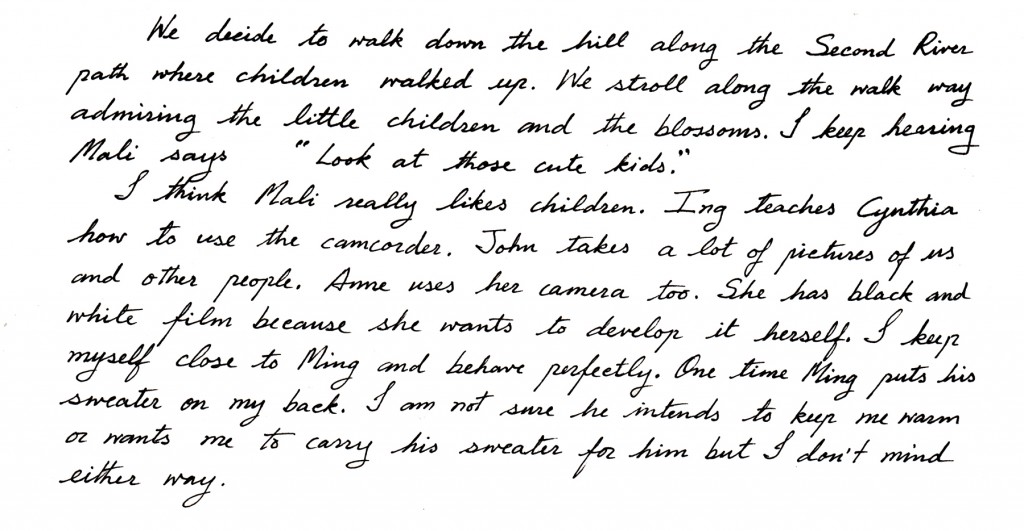 We decide to walk down the hill along the Second River
path where children walked up. We stroll along the walk way
admiring the little children and the blossoms. I keep hearing
Mali says " Look at those cute kids."
I think Mali really likes children. Ing teaches Cynthia
how to use the camcorder. John takes a lot of pictures of us
and other people. Anne uses her camera too. She has black and
white film because she wants to develop it herself. I keep
myself close to Ming and behave perfectly. One time Ming puts his
sweater on my back. I am not sure he intends to keep me warm
or wants me to carry his sweater for him but I don't mind
either way.